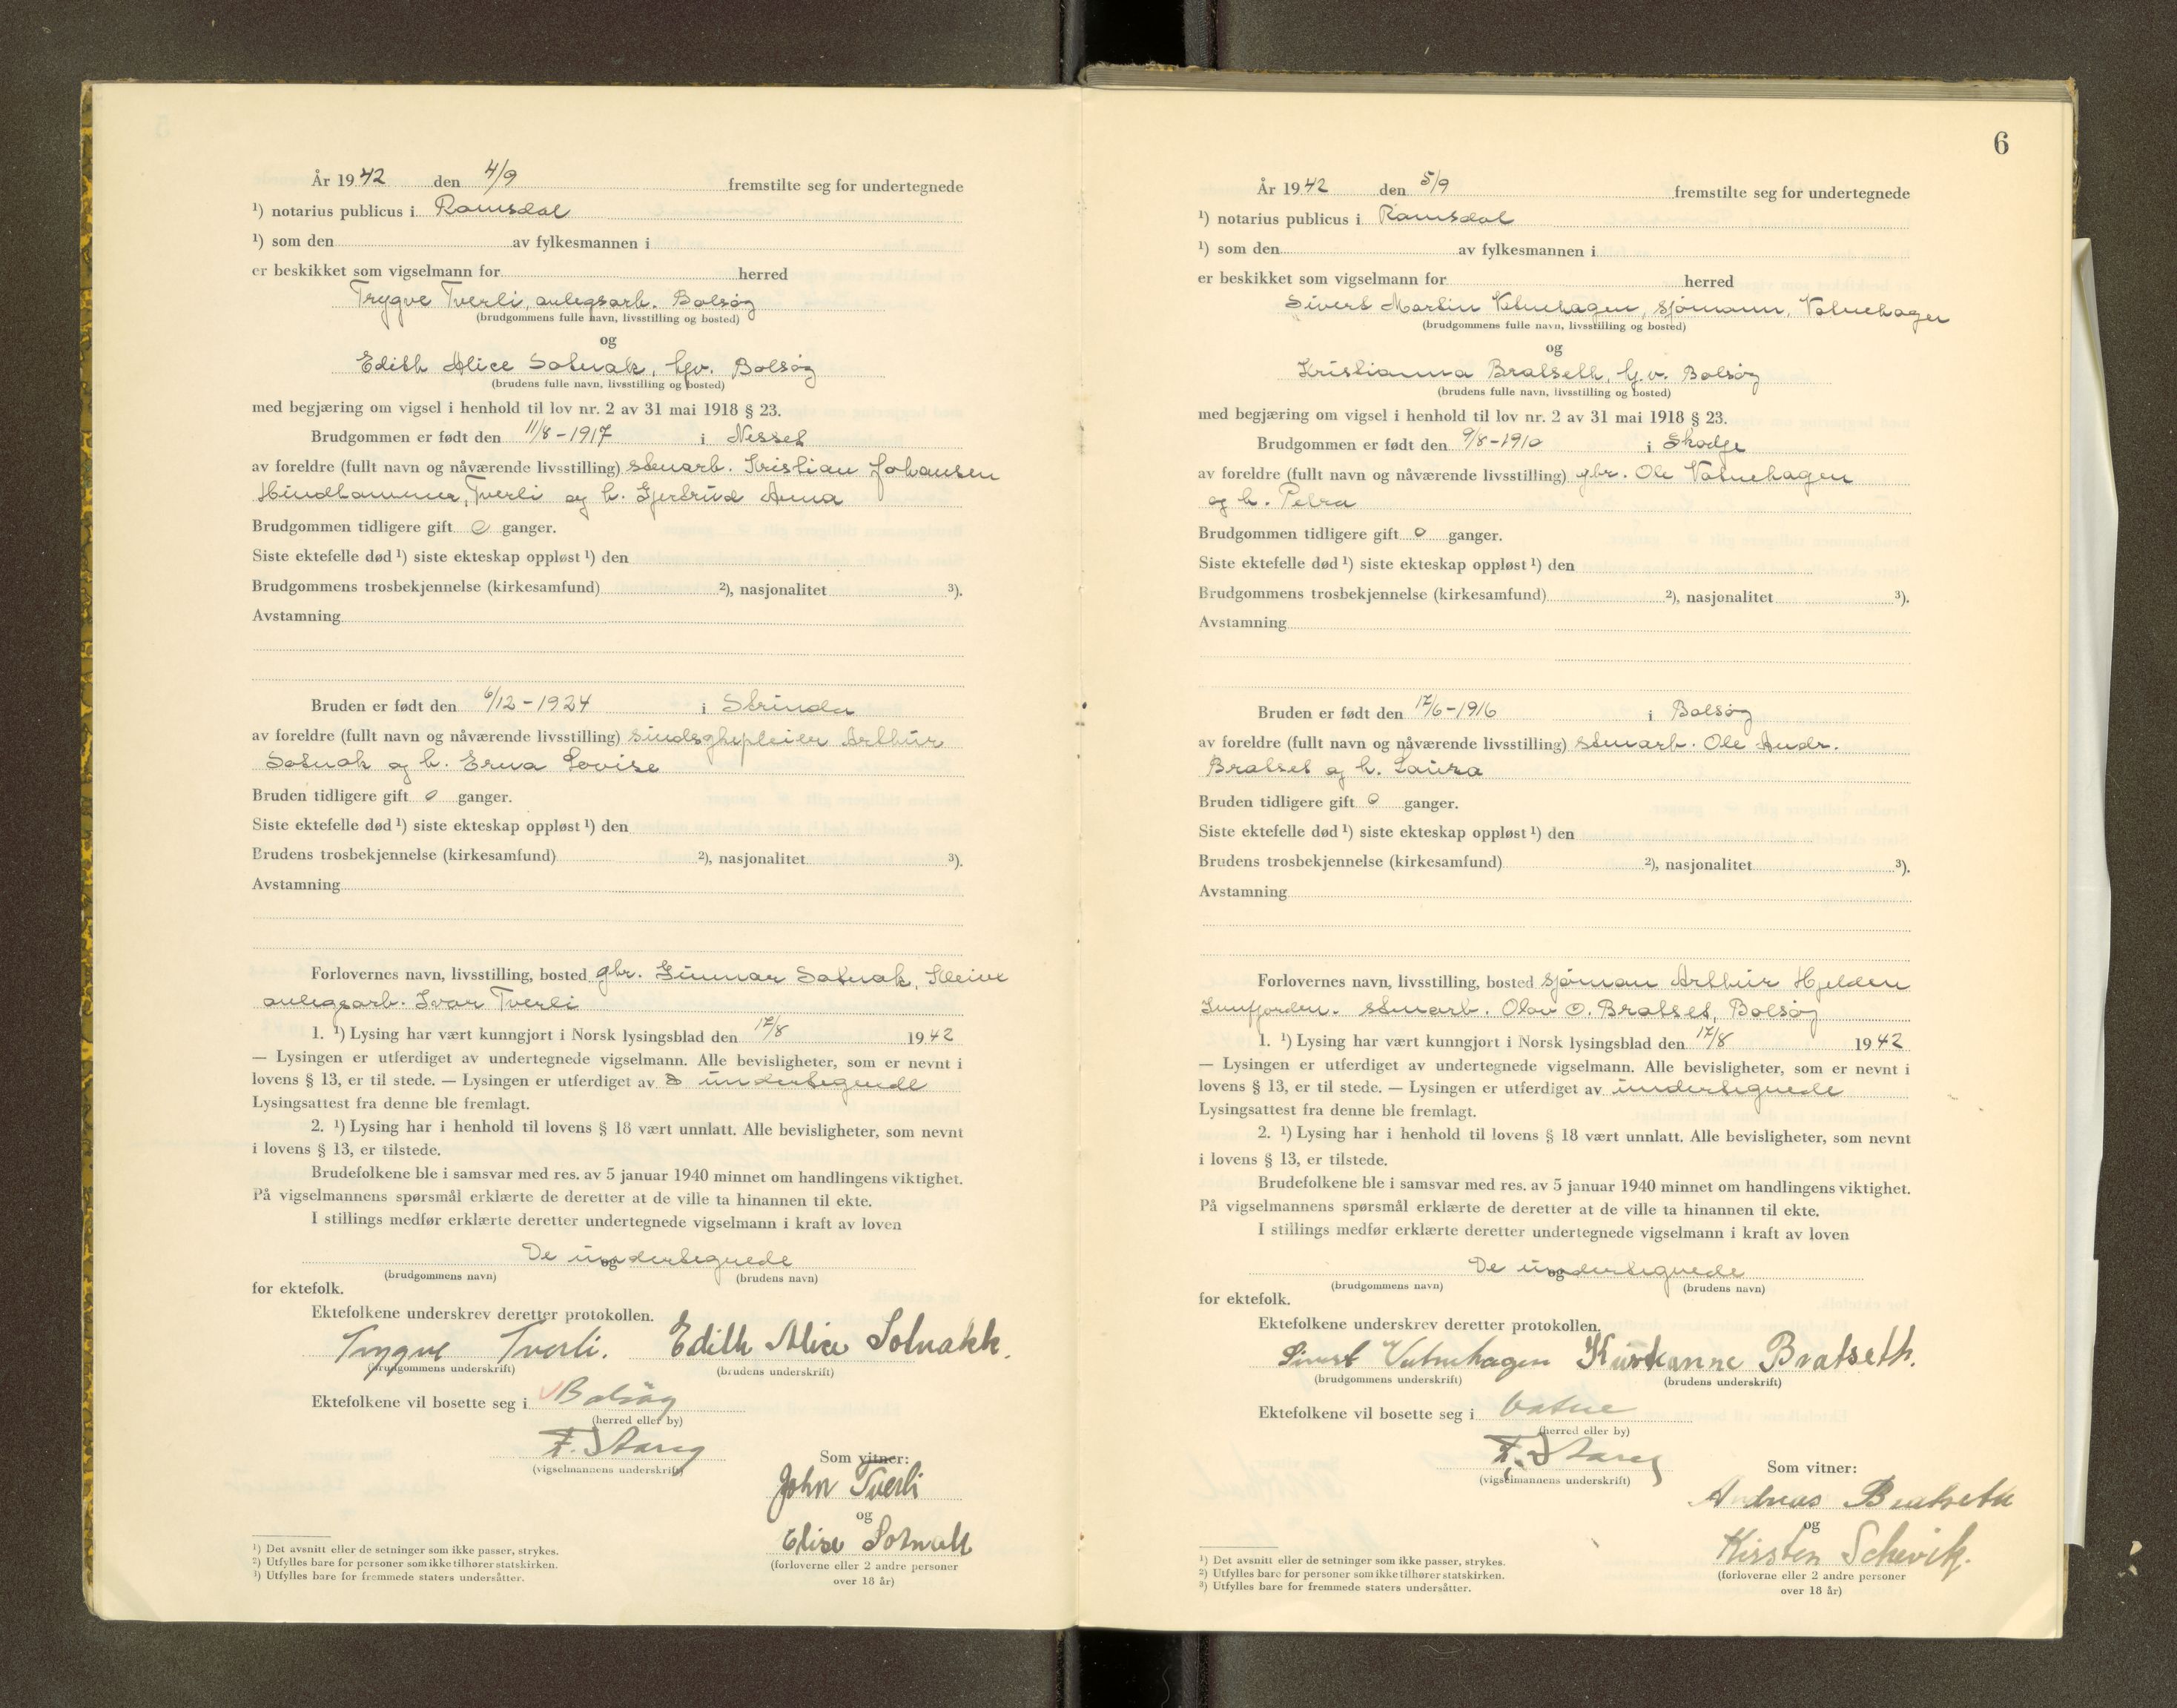 År 1942 den 4/9 fremstilte seg for undertegnede
¹) notarius publicus i Romsdal
¹) som den av fylkesmannen i
er beskikket som vigselmann for herred
Trygve Tverli, anlegsarb. Bolsøy
(brudgommens fulle navn, livsstilling og bosted)
og
Edith Alice Solnak, hjv. Bolsøy
(brudens fulle navn, livsstilling og bosted)
med begjæring om vigsel i henhold til lov nr. 2 av 31 mai 1918 § 23.
Brudgommen er født den 11/8-1917 i Nesset
av foreldre (fullt navn og nåværende livsstilling) stenarb. Kristian Johansen
Hindhammer, Tverli og h. Gjertrud Anna
Brudgommen tidligere gift 0 ganger.
Siste ektefelle død ¹) siste ekteskap oppløst ¹) den
Brudgommens trosbekjennelse (kirkesamfund) ²), nasjonalitet ³).
Avstamning
Bruden er født den 6/12-1924 i Strinda
av foreldre (fullt navn og nåværende livsstilling) sindsykepleier Arthur
Solnak og h. Erna Lovise
Bruden tidligere gift 0 ganger.
Siste ektefelle død ¹) siste ekteskap oppløst ¹) den
Brudens trosbekjennelse (kirkesamfund) ²), nasjonalitet ³).
Avstamning
Forlovernes navn, livsstilling, bosted gbr. Gunnar Solnak, Kleive
anlegsarb. Ivar Tverli
1. ¹) Lysing har vært kunngjort i Norsk lysingsblad den 17/8 1942
— Lysingen er utferdiget av undertegnede vigselmann. Alle bevisligheter, som er nevnt i
lovens § 13, er til stede. — Lysingen er utferdiget av undertegnede
Lysingsattest fra denne ble fremlagt.
2. ¹) Lysing har i henhold til lovens § 18 vært unnlatt. Alle bevisligheter, som nevnt
i lovens § 13, er tilstede.
Brudefolkene ble i samsvar med res. av 5 januar 1940 minnet om handlingens viktighet.
På vigselmannens spørsmål erklærte de deretter at de ville ta hinannen til ekte.
I stillings medfør erklærte deretter undertegnede vigselmann i kraft av loven
De undertegnede
og
(brudgommens navn) (brudens navn)
for ektefolk.
Ektefolkene underskrev deretter protokollen.
Trygve Tverli. Edith Alice Solnakk.
(brudgommens underskrift) (brudens underskrift)
Ektefolkene vil bosette seg i Bolsøy
(herred eller by)
(vigselmannens underskrift)
Som vitner:
John Tverli
og
Elise
(forloverne eller 2 andre personer
over 18 år)
¹) Det avsnitt eller de setninger som ikke passer, strykes.
²) Utfylles bare for personer som ikke tilhører statskirken.
³) Utfylles bare for fremmede staters undersåtter.
6
År 1942 den 5/9 fremstilte seg for undertegnede
¹) notarius publicus i Romsdal
¹) som den av fylkesmannen i
er beskikket som vigselmann for herred
Sivert Martin Vatnehagen, sjømann, Vatnehagen
(brudgommens fulle navn, livsstilling og bosted)
og
Kristianna Bratseth, hj.v. Bolsøy
(brudens fulle navn, livsstilling og bosted)
med begjæring om vigsel i henhold til lov nr. 2 av 31 mai 1918 § 23.
Brudgommen er født den 9/8-1910 i Skodje
av foreldre (fullt navn og nåværende livsstilling) gbr. Ole Vatnehagen
og h. Petra
Brudgommen tidligere gift 0 ganger.
Siste ektefelle død ¹) siste ekteskap oppløst ¹) den
Brudgommens trosbekjennelse (kirkesamfund) ²), nasjonalitet ³).
Avstamning
Bruden er født den 17/6-1916 i Bolsøy
av foreldre (fullt navn og nåværende livsstilling) stenarb. Ole Andr.
Bratset og h. Laura
Bruden tidligere gift 0 ganger.
Siste ektefelle død ¹) siste ekteskap oppløst ¹) den
Brudens trosbekjennelse (kirkesamfund) ²), nasjonalitet ³).
Avstamning
Forlovernes navn, livsstilling, bosted sjøman Arthur Hjelden
stenarb. Olav O. Bratset, Bolsøy
1. ¹) Lysing har vært kunngjort i Norsk lysingsblad den 17/8 1942
— Lysingen er utferdiget av undertegnede vigselmann. Alle bevisligheter, som er nevnt i
lovens § 13, er til stede. — Lysingen er utferdiget av undertegnede
Lysingsattest fra denne ble fremlagt.
2. ¹) Lysing har i henhold til lovens § 18 vært unnlatt. Alle bevisligheter, som nevnt
i lovens § 13, er tilstede.
Brudefolkene ble i samsvar med res. av 5 januar 1940 minnet om handlingens viktighet.
På vigselmannens spørsmål erklærte de deretter at de ville ta hinannen til ekte.
I stillings medfør erklærte deretter undertegnede vigselmann i kraft av loven
De undertegnede
og
(brudgommens navn) (brudens navn)
for ektefolk.
Ektefolkene underskrev deretter protokollen.
Sivert Vatnehagen Kristianne Bratseth.
(brudgommens underskrift) (brudens underskrift)
Ektefolkene vil bosette seg i Vatne
(herred eller by)
(vigselmannens underskrift)
Som vitner:
Andreas Bratseth
og
Kirsten
(forloverne eller 2 andre personer
over 18 år)
¹) Det avsnitt eller de setninger som ikke passer, strykes.
²) Utfylles bare for personer som ikke tilhører statskirken.
³) Utfylles bare for fremmede staters undersåtter.